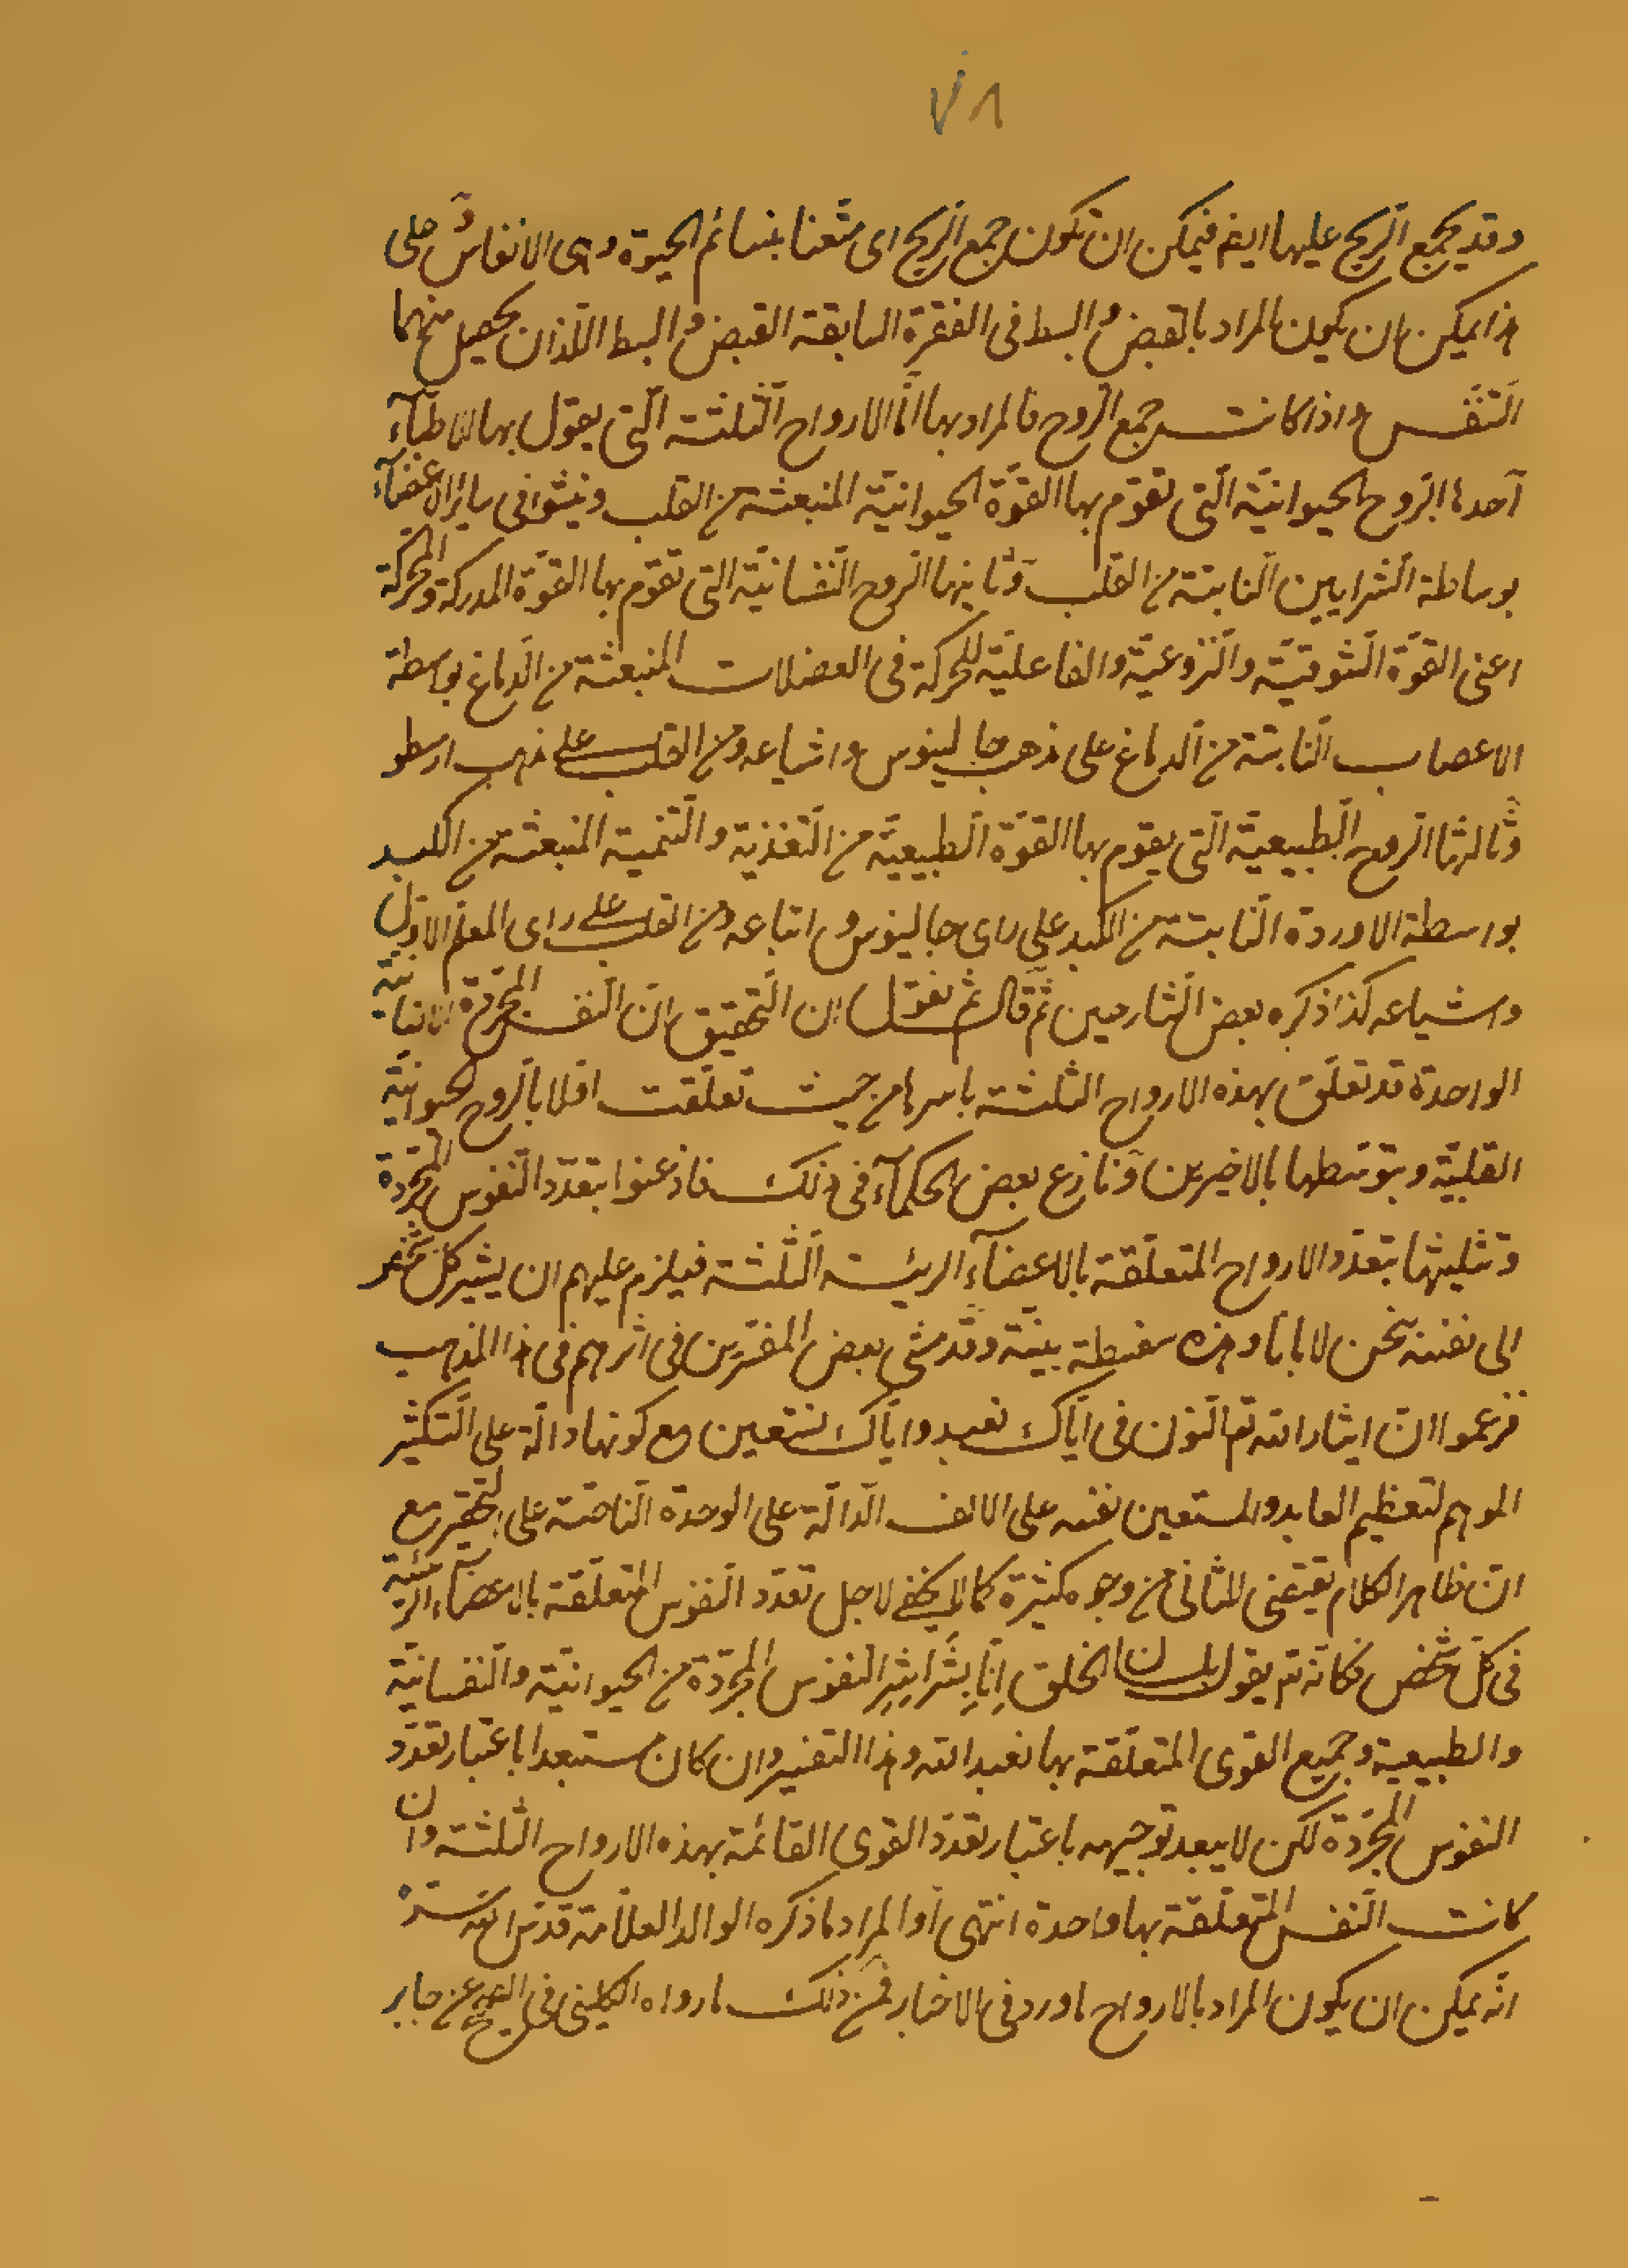 ٧٨
وقد يجمع الريح عليها ايضا فيمكن ان تكون جمع الريح اى متعنا بنسائم الحيوة وهى الانفاس وعلى
هذا يمكن ان يكون المراد بالقبض و البسط فى الفقرة السابقة القبض و البسط اللذان يحصل منهما
التنفس واذا كانت جمع الروح فالمراد بها اما الارواح الثلثة التى يقول بها الاطبآء
آحدها الروح الحيوانية التى تقوم بها القوة الحيوانية المنبعثة من القلب وينشؤ فى ساير الاعضآء
بوساطة الشرايين النابتة من القلب وثانيها الروح النفسانية التى تقوم بها القوة المدركة والمحركة
اعنى القوة الشوقية والنزوعية والفاعلية للحركة فى العضلات المنبعثة من الدماغ بواسطة
الاعصاب النابتة من الدماغ على مذهب جالينوس واشياعه ومن القلب على مذهب ارسطو
وثالثها الروح الطبيعية التى يقوم بها القوة الطبيعية من التغذية والتنمية المنبعثة من الكبد
بواسطة الاوردة النابتة من الكبد على راى جالينوس واتباعه ومن القلب على راى المعلم الاول
واشياعه كذا ذكره بعض الشارحين ثم قال ثم نقول ان التحقيق ان النفس المجردة الانسانية
الواحدة قد تعلق بهذه الارواح الثلثة باسرها من حيث تعلقت اولا بالروح الحيوانية
القلبية وبتوسطها بالاخيرين ونازع بعض الحكمآء فى ذلك فاذعنوا بتعدد النفوس المجردة
وتثليثها بتعدد الارواح المتعلقة بالاعضآء الرئيسة الثلثة فيلزم عليهم ان يشير كل شخص
الى نفسه بنحن لا بانا وهذه سفسطة بينة وقد مشى بعض المفسرين فى اثرهم فى هذا المذهب
فزعموا ان ايثار الله تع النون فى اياك نعبد واياك نستعين مع كونها دالة على التكثير
الموهم لتعظيم العابد والمستعين نفسه على الالف الدالة على الوحدة الناصة على التحقير مع
ان ظاهر الكلام يقتضى الثانى من وجوه كثيرة كما لا يخفى لاجل تعدد النفوس المتعلقة بالاعضاء الرئيسية
فى كل شخص فكانه تع يقول بلسان الخلق انا بشراشر النفوس المجردة من الحيوانية والنفسانية
والطبيعية وجميع القوى المتعلقة بها نعبد الله وهذا التفسير وان كان مستبعدا باعتبار تعدد
النفوس المجردة لكن لا يبعد توجيهه باعتبار تعدد القوى القائمة بهذه الارواح الثلثة وان
كانت النفس المتعلقة بها واحدة انتهى أو المراد ما ذكره الوالد العلامة قدس الله سره
انه يمكن ان يكون المراد بالارواح ما ورد فى الاخبار فمن ذلك ما رواه الكلينى فى الصحيح عن جابر